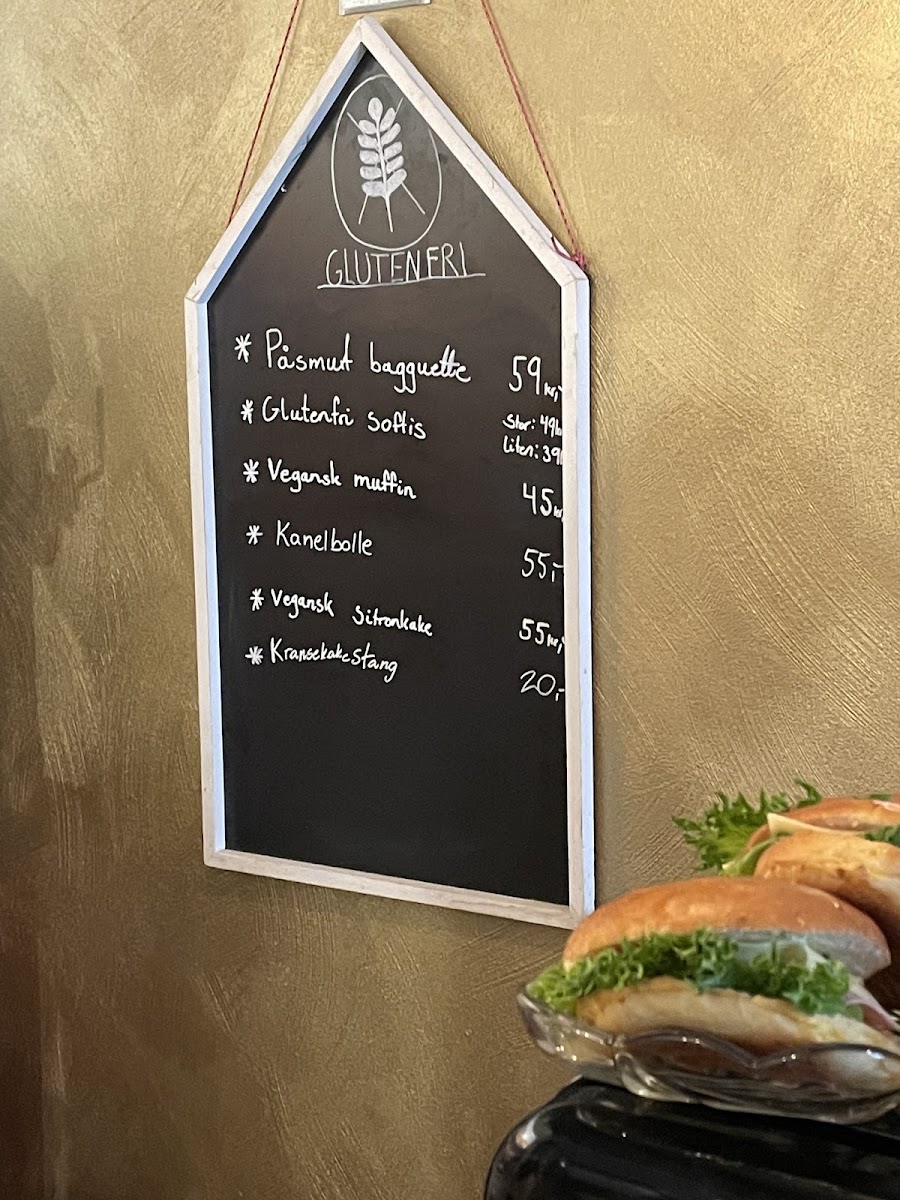 GLUTENFRI
* Påsmurt bagguette 59 kr,-
* Glutenfri softis Stor: 49kr
Liten: 39k
* Vegansk muffin 45 kr,
* Kanelbolle 55,-
* Vegansk Sitronkake 55 kr,-
* Kransekakestang 20,-